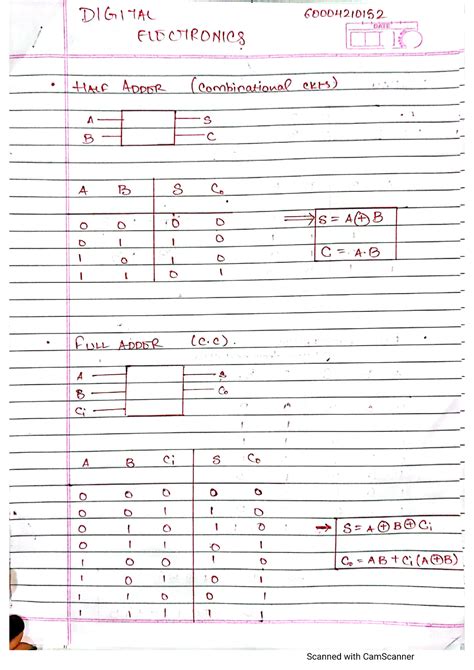 DIGITAL 60004210152
ELECTRONICS DATE
HALF ADDER (Combinational ckts)
A S
B C
A B S Co
0 0 0 0 ⇒ S = A⊕B
0 1 1 0
1 0 1 0 C = A·B
1 1 0 1
FULL ADDER (C.C).
A S
B Co
Ci
A B Ci S Co
0 0 0 0 0
0 0 1 1 0
0 1 0 1 0 → S = A⊕B⊕Ci
0 1 1 0 1
1 0 0 1 0 Co = AB + Ci(A⊕B)
1 0 1 0 1
1 1 0 0 1
1 1 1 1 1
Scanned with CamScanner